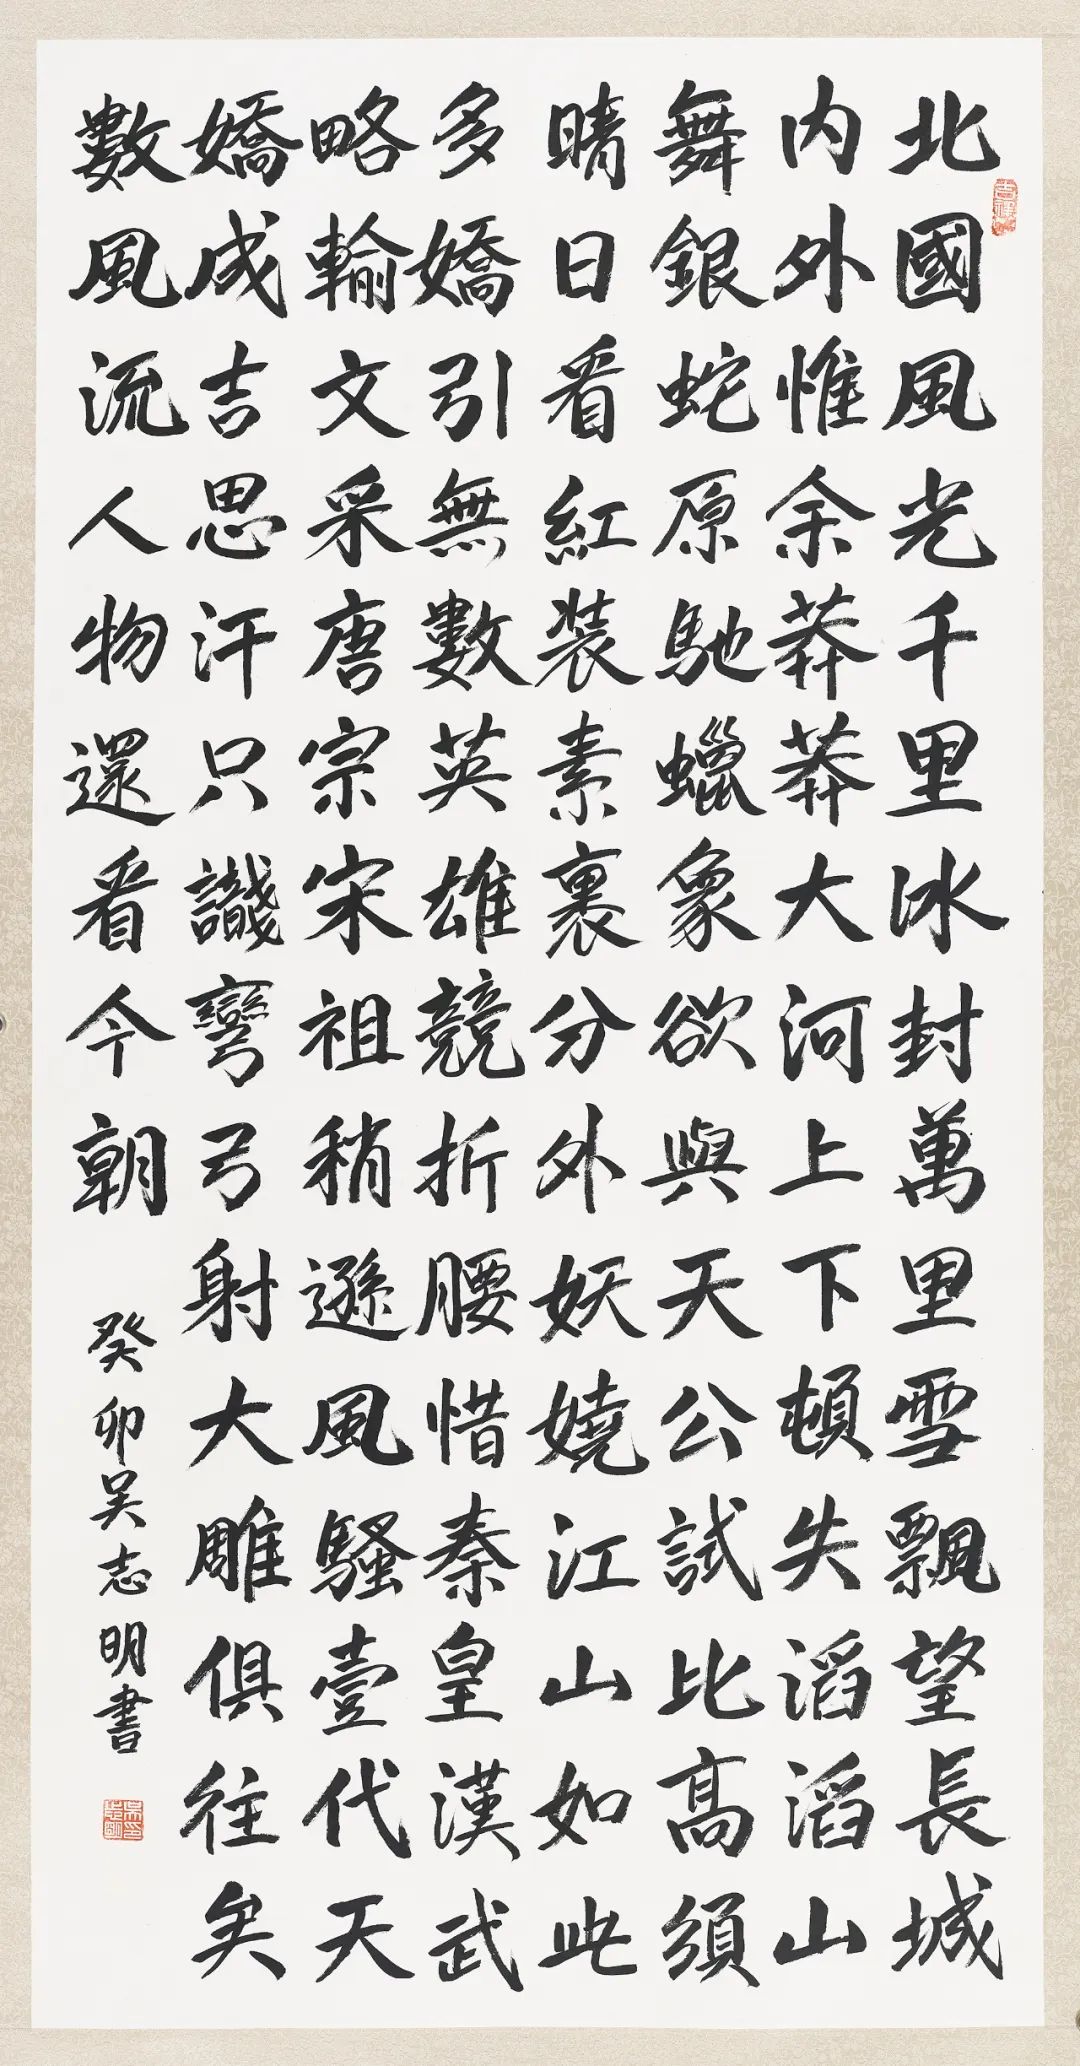 北國風光千里冰封萬里雪飄望長城
内外惟余莽莽大河上下頓失滔滔山
舞銀蛇原馳蠟象欲與天公試比高須
晴日看紅装素裹分外妖嬈江山如此
多嬌引無數英雄競折腰惜秦皇漢武
略輸文采唐宗宋祖稍遜風騷壹代天
嬌成吉思汗只識彎弓射大雕俱往矣
數風流人物還看今朝
癸卯吴志明書